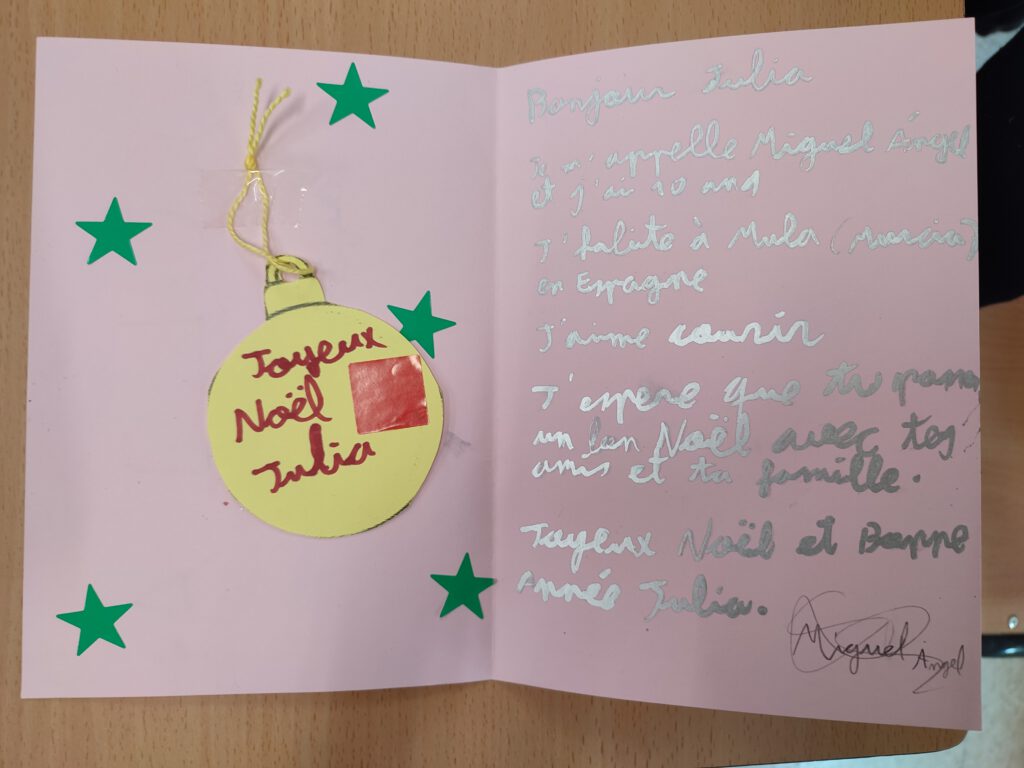 Joyeux
Noël
Julia
Bonjour Julia
Je m'appelle Miguel Ángel
et j'ai 10 ans
J'habite à Mula (Murcia)
en Espagne
J'aime courir
J'espère que tu passes
un bon Noël avec tes
amis et ta famille.
Joyeux Noël et Bonne
Année Julia.
Miguel Ángel